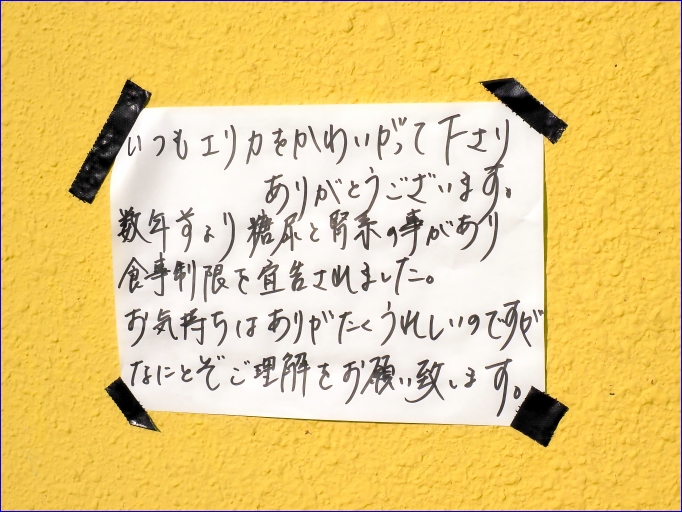 いつもエリカをかわいがって下さり
ありがとうございます。
数年前より糖尿と腎系の事があり
食事制限を宣告されました。
お気持ちはありがたくうれしいのですが
なにとぞご理解をお願い致します。